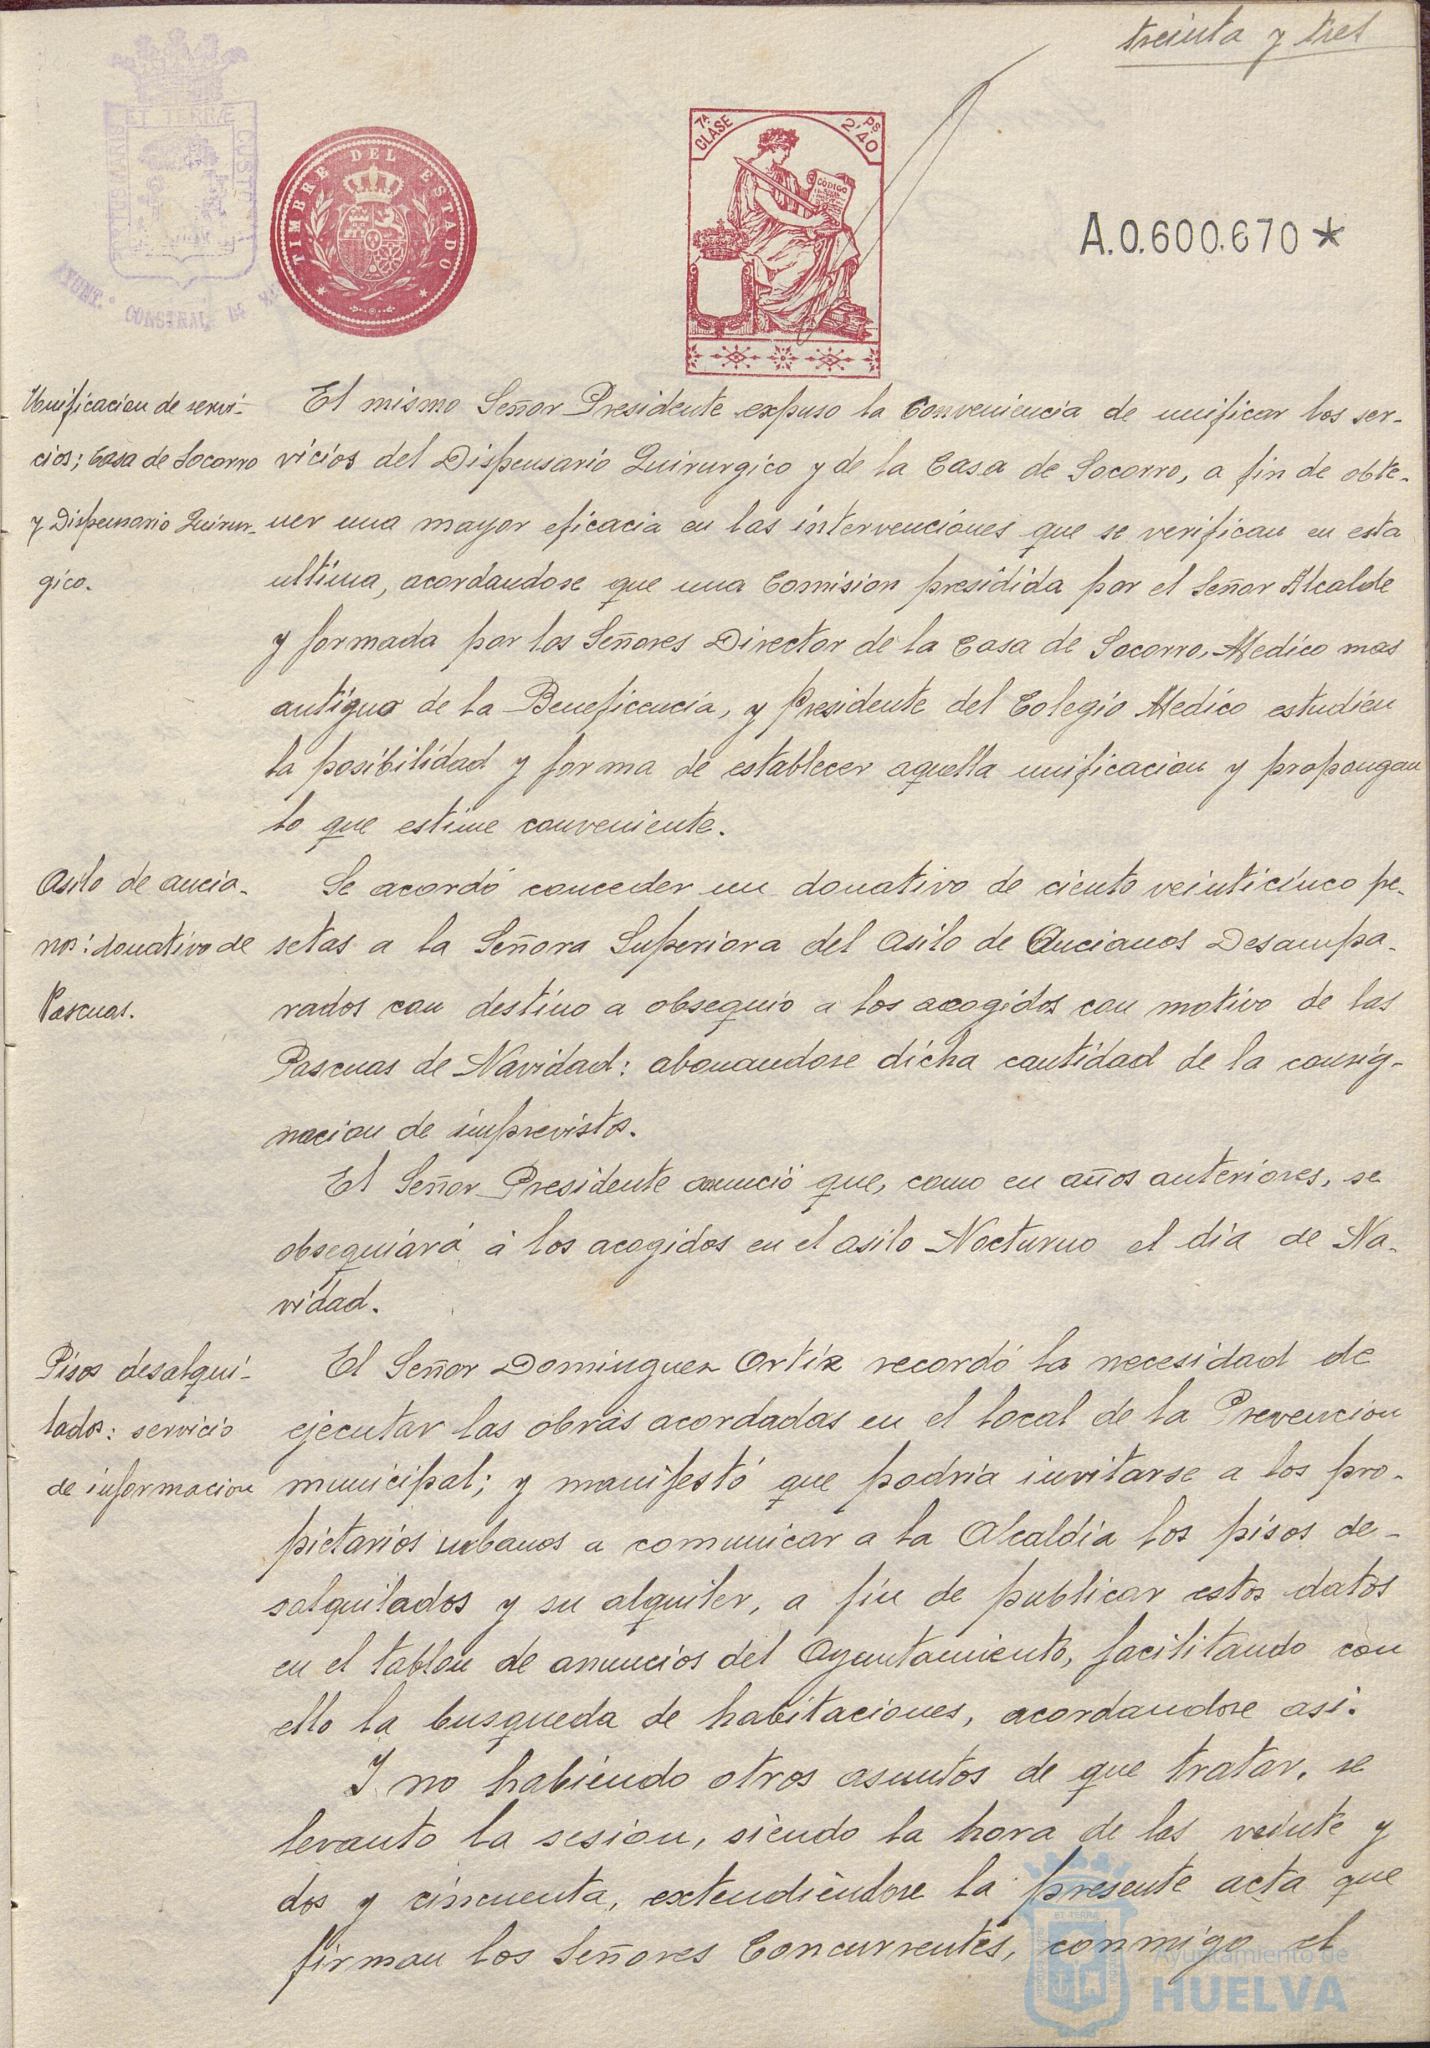 treinta y tres
PORTUS MARIS ET TERRÆ CUSTODIA
AYUNT. CONSTNAL. DE
TIMBRE DEL ESTADO
7ª CLASE
PS 2'40
CODIGO
A.0.600.670*
Unificacion de servi-
cios; Casa de Socorro
y Dispensario Quirur-
gico.
El mismo Señor Presidente expuso la conveniencia de unificar los ser-
vicios del Dispensario Quirurgico y de la Casa de Socorro, a fin de obte-
ner una mayor eficacia en las intervenciones que se verifican en esta
ultima, acordandose que una Comision presidida por el Señor Alcalde
y formada por los Señores Director de la Casa de Socorro, Medico mas
antiguo de la Beneficencia, y Presidente del Colegio Medico estudien
la posibilidad y forma de establecer aquella unificacion y propongan
lo que estime conveniente.
Asilo de ancia-
nos: donativo de
Pascuas.
Se acordó conceder un donativo de ciento veinticinco pe-
setas a la Señora Superiora del Asilo de Ancianos Desampa-
rados con destino a obsequio a los acogidos con motivo de las
Pascuas de Navidad: abonandose dicha cantidad de la consig-
nacion de imprevistos.
El Señor Presidente anunció que, como en años anteriores, se
obsequiará á los acogidos en el asilo Nocturno el dia de Na-
vidad.
Pisos desalqui-
lados: servicio
de informacion
El Señor Dominguez Ortiz recordó la necesidad de
ejecutar las obras acordadas en el local de la Prevencion
municipal; y manifestó que podria invitarse a los pro-
pietarios urbanos a comunicar a la Alcaldia los pisos de-
salquilados y su alquiler, a fin de publicar estos datos
en el tablon de anuncios del Ayuntamiento, facilitando con
ello la busqueda de habitaciones, acordandose asi.
Y no habiendo otros asuntos de que tratar, se
levanto la sesion, siendo la hora de las veinte y
dos y cincuenta, extendiéndose la presente acta que
firman los Señores Concurrentes, conmigo el
Ayuntamiento de
HUELVA